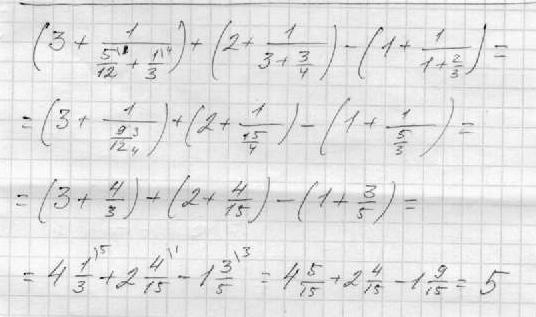 (3 + 1/(5/12 \1 + 1/3 \4)) + (2 + 1/(3 + 3/4)) - (1 + 1/(1 + 2/3)) =
= (3 + 1/(9/12 3/4)) + (2 + 1/(15/4)) - (1 + 1/(5/3)) =
= (3 + 4/3) + (2 + 4/15) - (1 + 3/5) =
= 4 1/3 \5 + 2 4/15 \1 - 1 3/5 \3 = 4 5/15 + 2 4/15 - 1 9/15 = 5